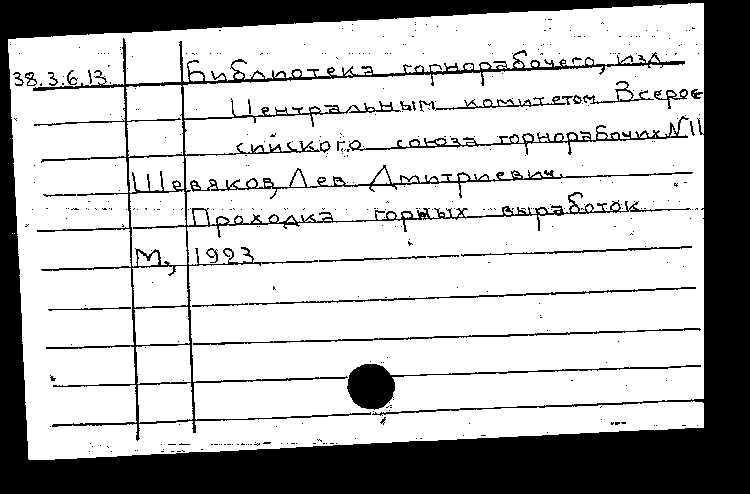 38.3.6.13. Библиотека горнорабочего, изд.
Центральным комитетом Всерос
сийского союза горнорабочих №11
Шевяков, Лев Дмитриевич.
Проходка горных выработок
М., 1923